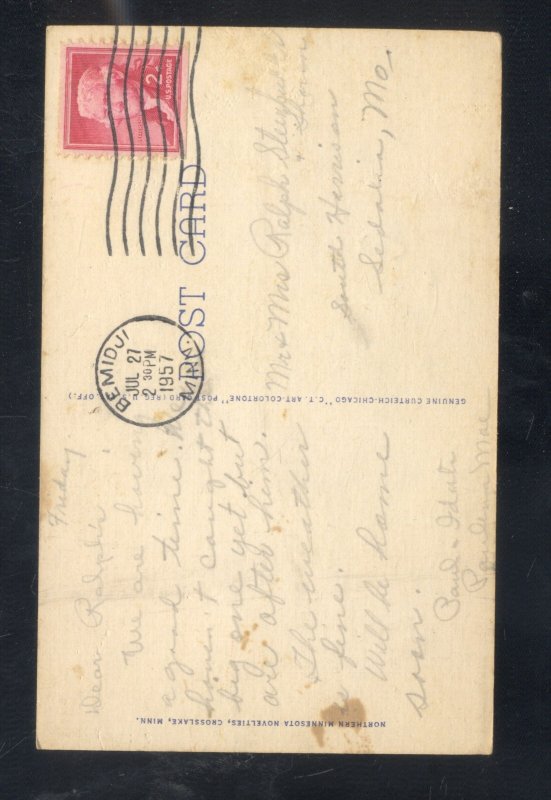 POST CARD
2¢
U.S. POSTAGE
BEMIDJI
JUL 27
2 30 PM
1957
MINN.
Friday
Dear Ralph's
We are having
a good time. We
haven't caught the
big one yet but
are after him.
The weather
is fine.
Will be home
soon.
Paul &
Mae
Mr & Mrs Ralph
South Harrison
Sedalia, Mo.
GENUINE CURTEICH-CHICAGO "C.T. ART-COLORTONE" POST CARD (REG. U.S. PAT. OFF.)
NORTHERN MINNESOTA NOVELTIES, CROSSLAKE, MINN.